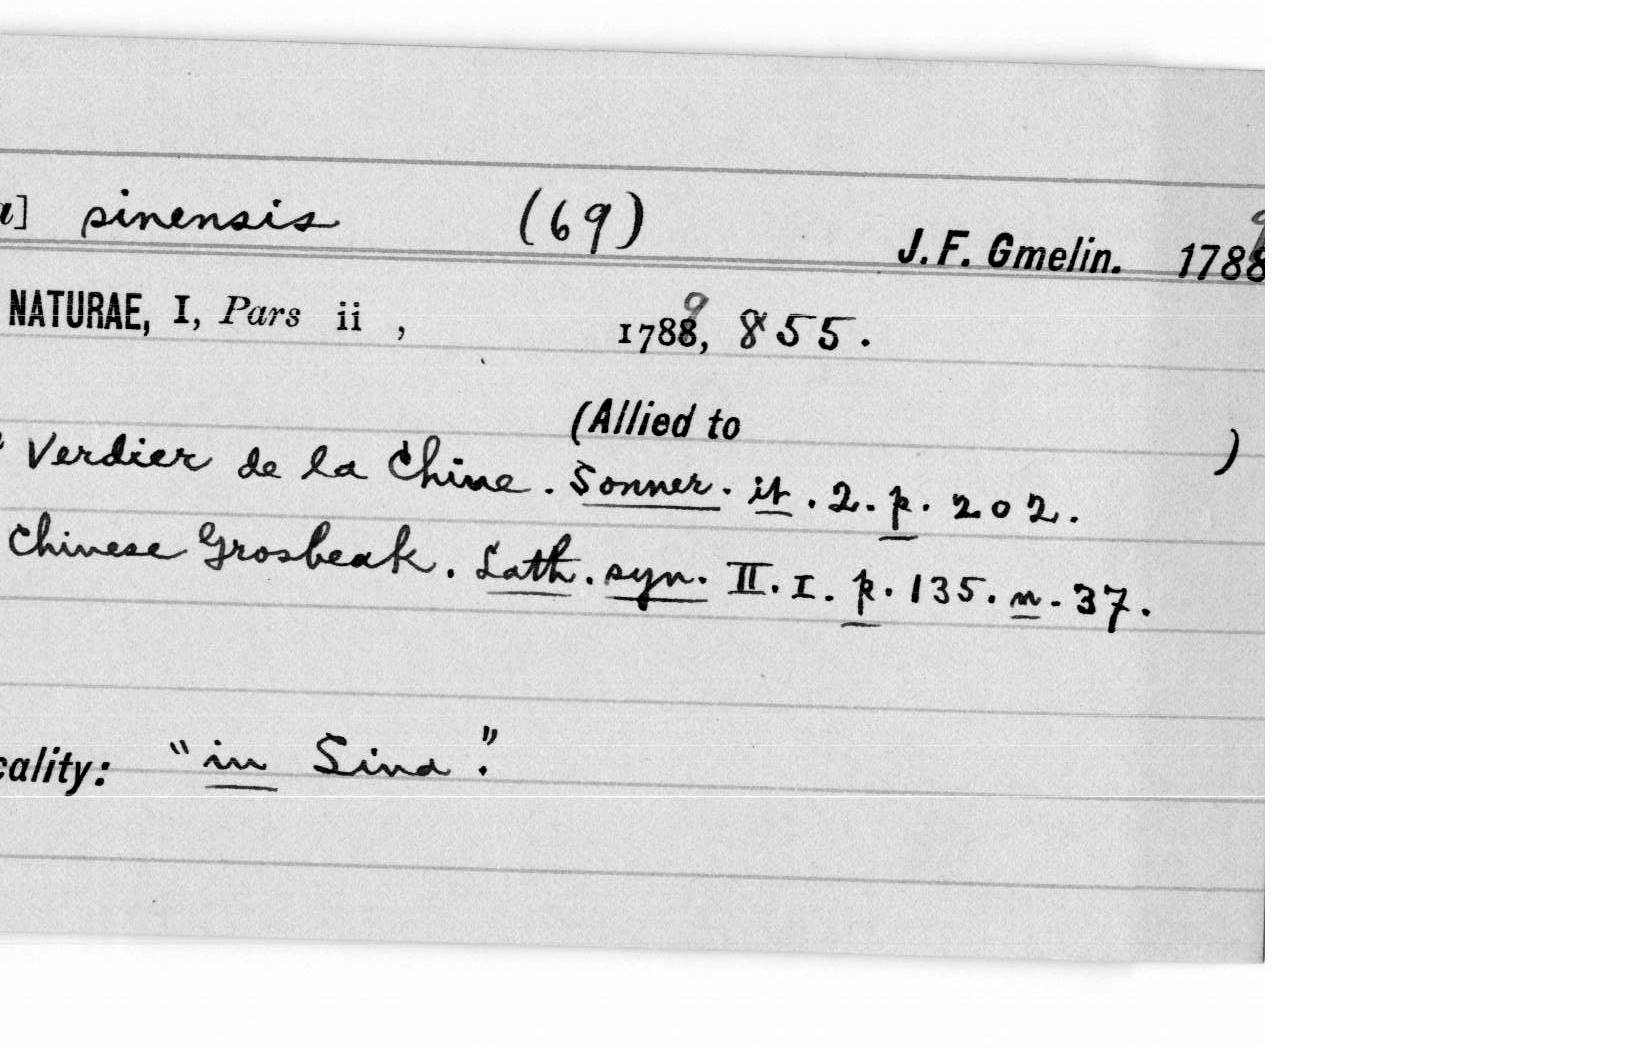 a] sinensis (69) J. F. Gmelin. 1788 9
NATURAE, I, Pars ii , 1788, 9 855.
(Allied to )
Verdier de la Chine. Sonner. it. 2. p. 202.
Chinese Grosbeak. Lath. syn. II. I. p. 135. n. 37.
cality: "in Sina."